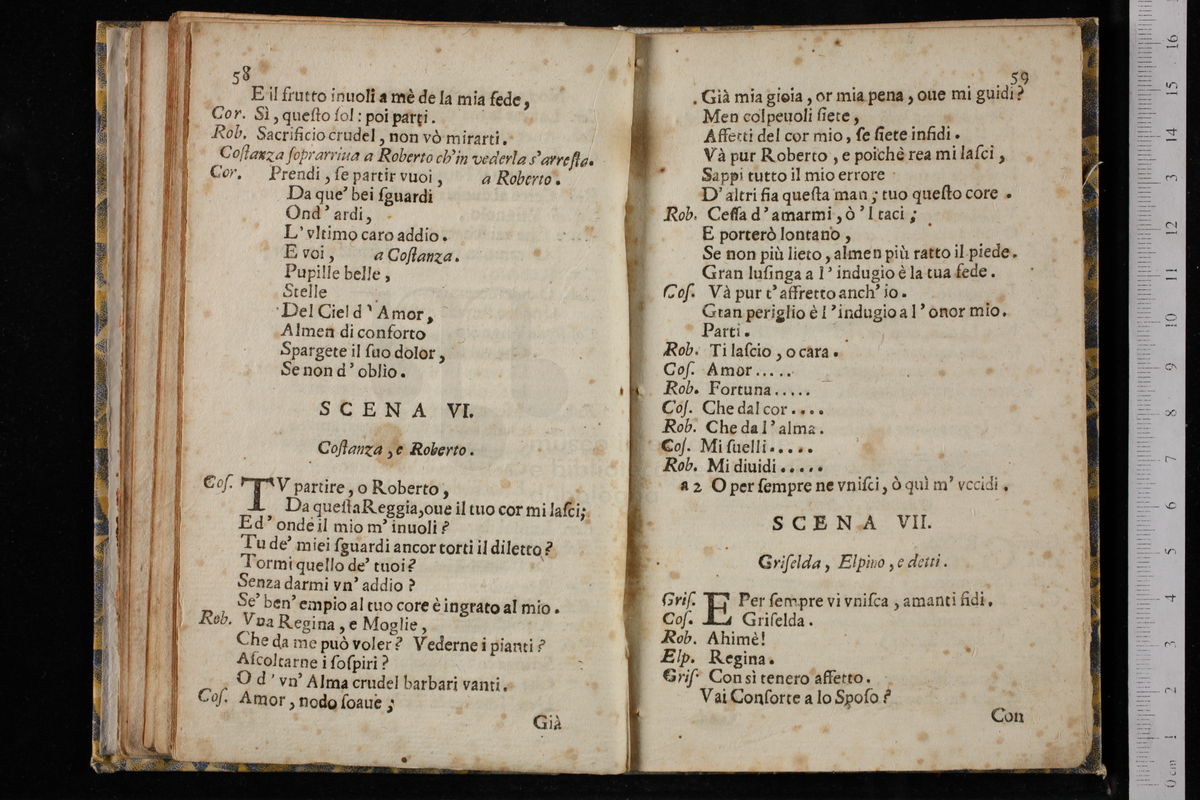 58
E il frutto inuoli a mè de la mia fede,
Cor. Sì, questo sol: poi parti.
Rob. Sacrificio crudel, non vò mirarti.
Costanza soprarriua a Roberto ch'in vederla s'arresta.
Cor. Prendi, se partir vuoi, a Roberto.
Da que' bei sguardi
Ond' ardi,
L'vltimo caro addio.
E voi, a Costanza.
Pupille belle,
Stelle
Del Ciel d' Amor,
Almen di conforto
Spargete il suo dolor,
Se non d' oblio.
SCENA VI.
Costanza, e Roberto.
Cos. TV partire, o Roberto,
Da questa Reggia, oue il tuo cor mi lasci;
Ed' onde il mio m' inuoli?
Tu de' miei sguardi ancor torti il diletto?
Tormi quello de' tuoi?
Senza darmi vn' addio?
Se' ben' empio al tuo core è ingrato al mio.
Rob. Vna Regina, e Moglie,
Che da me può voler? Vederne i pianti?
Ascoltarne i sospiri?
O d' vn' Alma crudel barbari vanti.
Cos. Amor, nodo soaue;
Già
59
Già mia gioia, or mia pena, oue mi guidi?
Men colpeuoli siete,
Affetti del cor mio, se siete infidi.
Và pur Roberto, e poichè rea mi lasci,
Sappi tutto il mio errore
D' altri fia questa man; tuo questo core.
Rob. Cessa d' amarmi, ò 'l taci;
E porterò lontano,
Se non più lieto, almen più ratto il piede.
Gran lusinga a l' indugio è la tua fede.
Cos. Và pur t' affretto anch' io.
Gran periglio è l'indugio a l' onor mio.
Parti.
Rob. Ti lascio, o cara.
Cos. Amor.....
Rob. Fortuna.....
Cos. Che dal cor....
Rob. Che da l' alma.
Cos. Mi suelli.....
Rob. Mi diuidi.....
a 2 O per sempre ne vnisci, ò quì m' vccidi.
SCENA VII.
Griselda, Elpino, e detti.
Gris. E Per sempre vi vnisca, amanti fidi.
Cos. Griselda.
Rob. Ahimè!
Elp. Regina.
Gris. Con sì tenero affetto.
Vai Consorte a lo Sposo?
Con